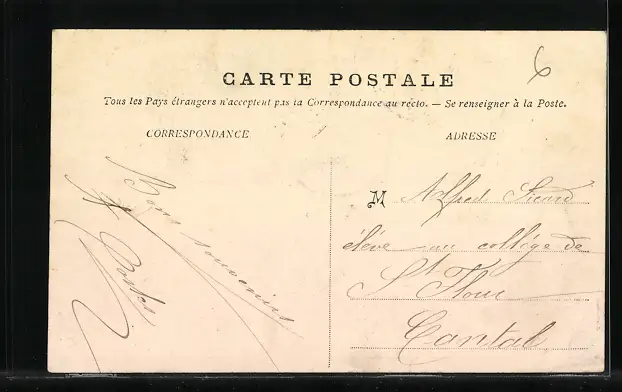 6
CARTE POSTALE
Tous les Pays étrangers n'acceptent pas la Correspondance au recto. — Se renseigner à la Poste.
CORRESPONDANCE
ADRESSE
Bons souvenirs
M Alfred Sicard
élève au collège de
St Flour
Cantal